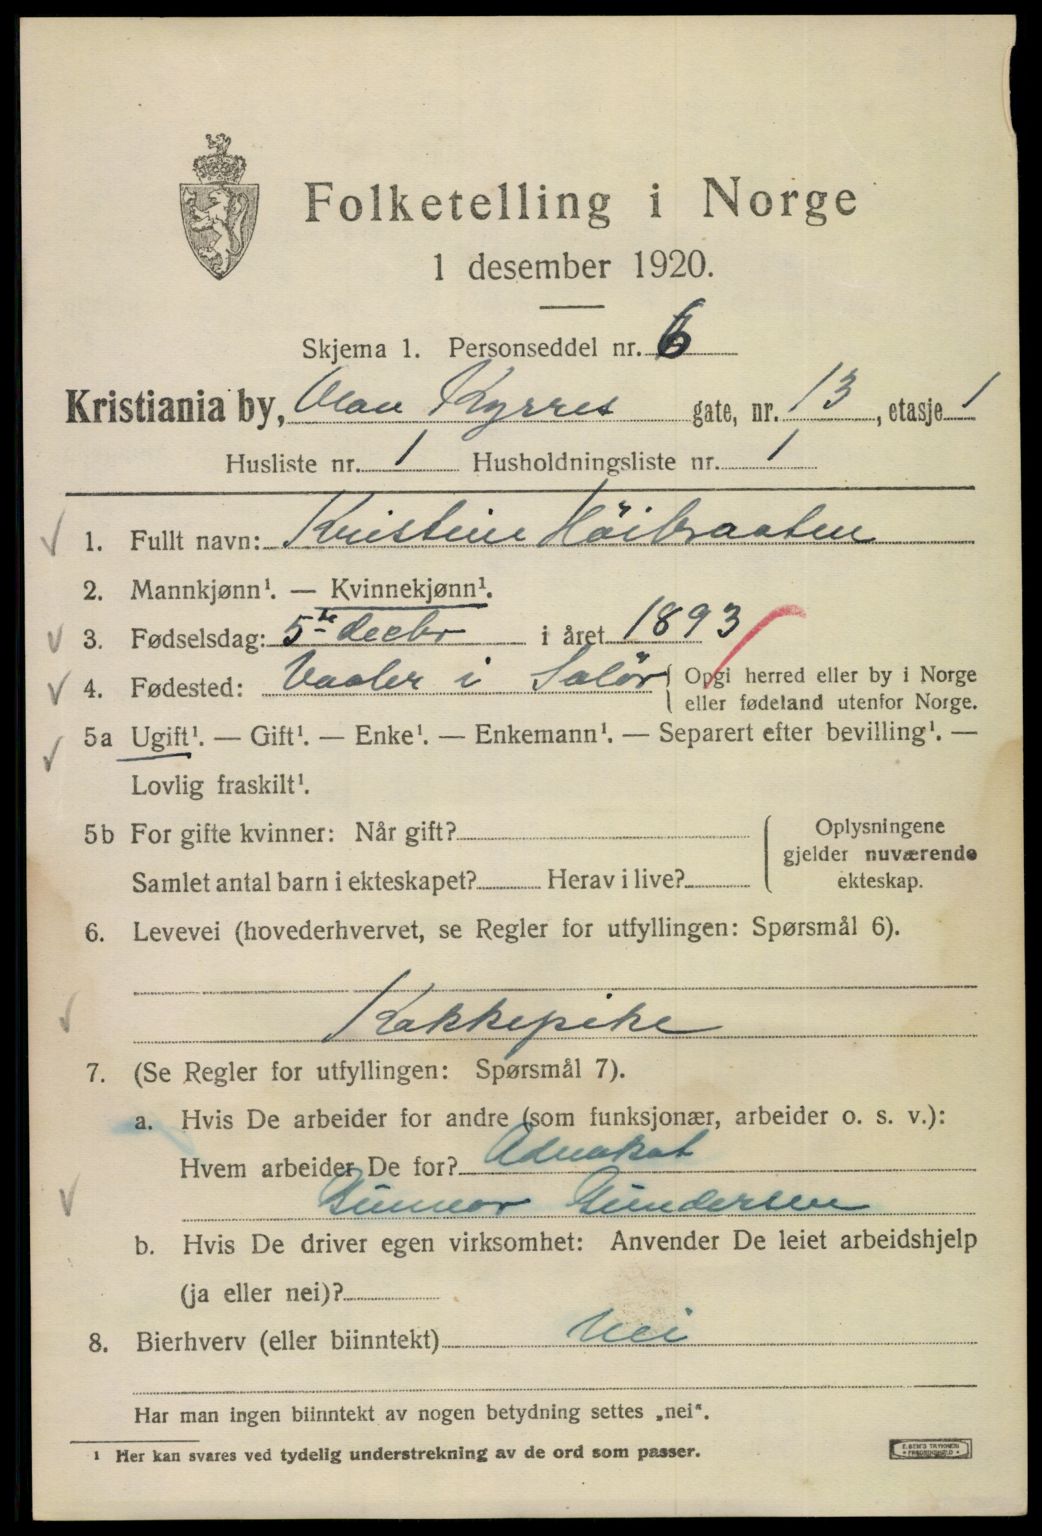 Folketelling i Norge
1 desember 1920.
Skjema 1. Personseddel nr. 6
Kristiania by, Olav Kyrres gate, nr. 13, etasje 1
Husliste nr. 1 Husholdningsliste nr. 1
1. Fullt navn: Kristine Höibraaten
2. Mannkjønn¹. — Kvinnekjønn¹.
3. Fødselsdag: 5te decbr i året 1893
4. Fødested: Vaaler i Solör { Opgi herred eller by i Norge
eller fødeland utenfor Norge.
5a Ugift¹. — Gift¹. — Enke¹. — Enkemann¹. — Separert efter bevilling¹. —
Lovlig fraskilt¹.
5b For gifte kvinner: Når gift?
Samlet antal barn i ekteskapet? Herav i live?
Oplysningene
gjelder nuværende
ekteskap.
6. Levevei (hovederhvervet, se Regler for utfyllingen: Spørsmål 6).
Kokkepike
7. (Se Regler for utfyllingen: Spørsmål 7).
a. Hvis De arbeider for andre (som funksjonær, arbeider o. s. v.):
Hvem arbeider De for? Advokat
Gunnar Gundersen
b. Hvis De driver egen virksomhet: Anvender De leiet arbeidshjelp
(ja eller nei)?
8. Bierhverv (eller biinntekt) Nei
Har man ingen biinntekt av nogen betydning settes „nei".
¹ Her kan svares ved tydelig understrekning av de ord som passer.